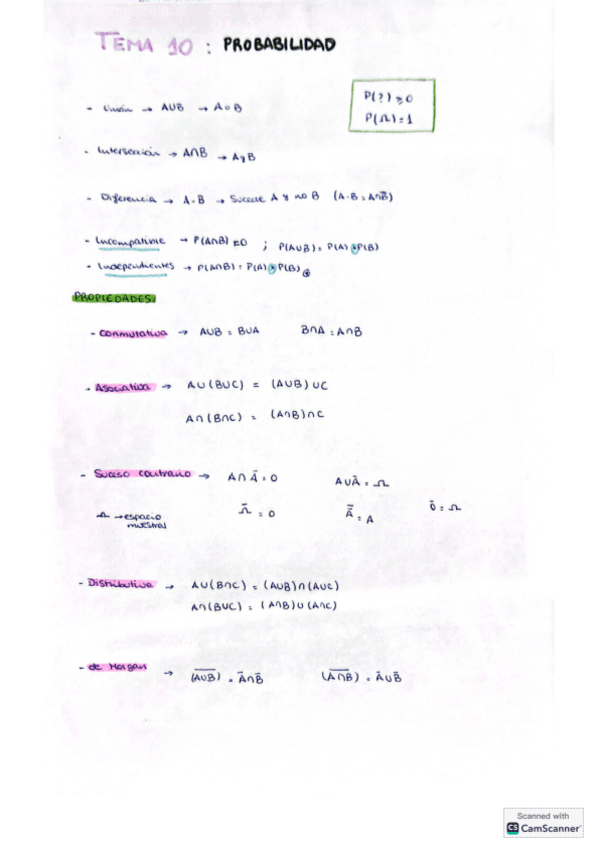 TEMA 10 : PROBABILIDAD
P(?) ≥ 0
P(Ω) = 1
- Unión → A∪B → A o B
- Intersección → A∩B → A y B
- Diferencia → A-B → Sucede A y no B (A-B = A∩B̄)
- Incompatible → P(A∩B) = 0 ; P(A∪B) = P(A) + P(B)
- Independientes → P(A∩B) = P(A) × P(B)
PROPIEDADES:
- Conmutativa → A∪B = B∪A B∩A = A∩B
- Asociativa → A∪(B∪C) = (A∪B)∪C
A∩(B∩C) = (A∩B)∩C
- Suceso contrario → A∩Ā = 0 A∪Ā = Ω
Ω → espacio muestral Ω̄ = 0 A̿ = A 0̄ = Ω
- Distributiva → A∪(B∩C) = (A∪B)∩(A∪C)
A∩(B∪C) = (A∩B)∪(A∩C)
- de Morgan → (A∪B)̅ = Ā∩B̄ (A∩B)̅ = Ā∪B̄
Scanned with
CS CamScanner